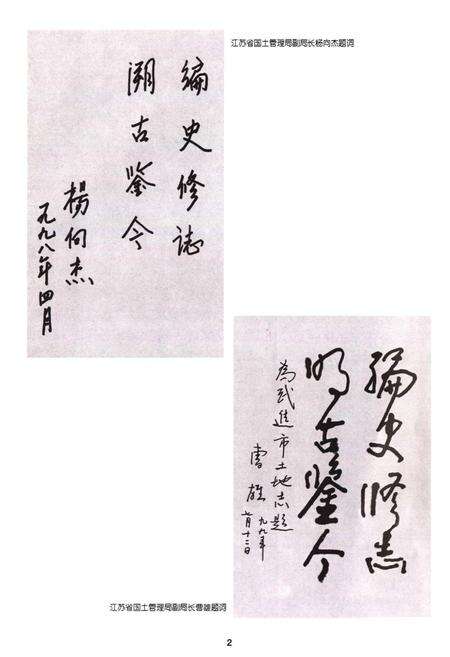 江苏省国土管理局副局长杨向杰题词
编史修誌
溯古鉴今
楊向杰
一九九八年四月
编史修志
明古鉴今
為武進市土地志題
曹雄
九九年
七月十二日
江苏省国土管理局副局长曹雄题词
2